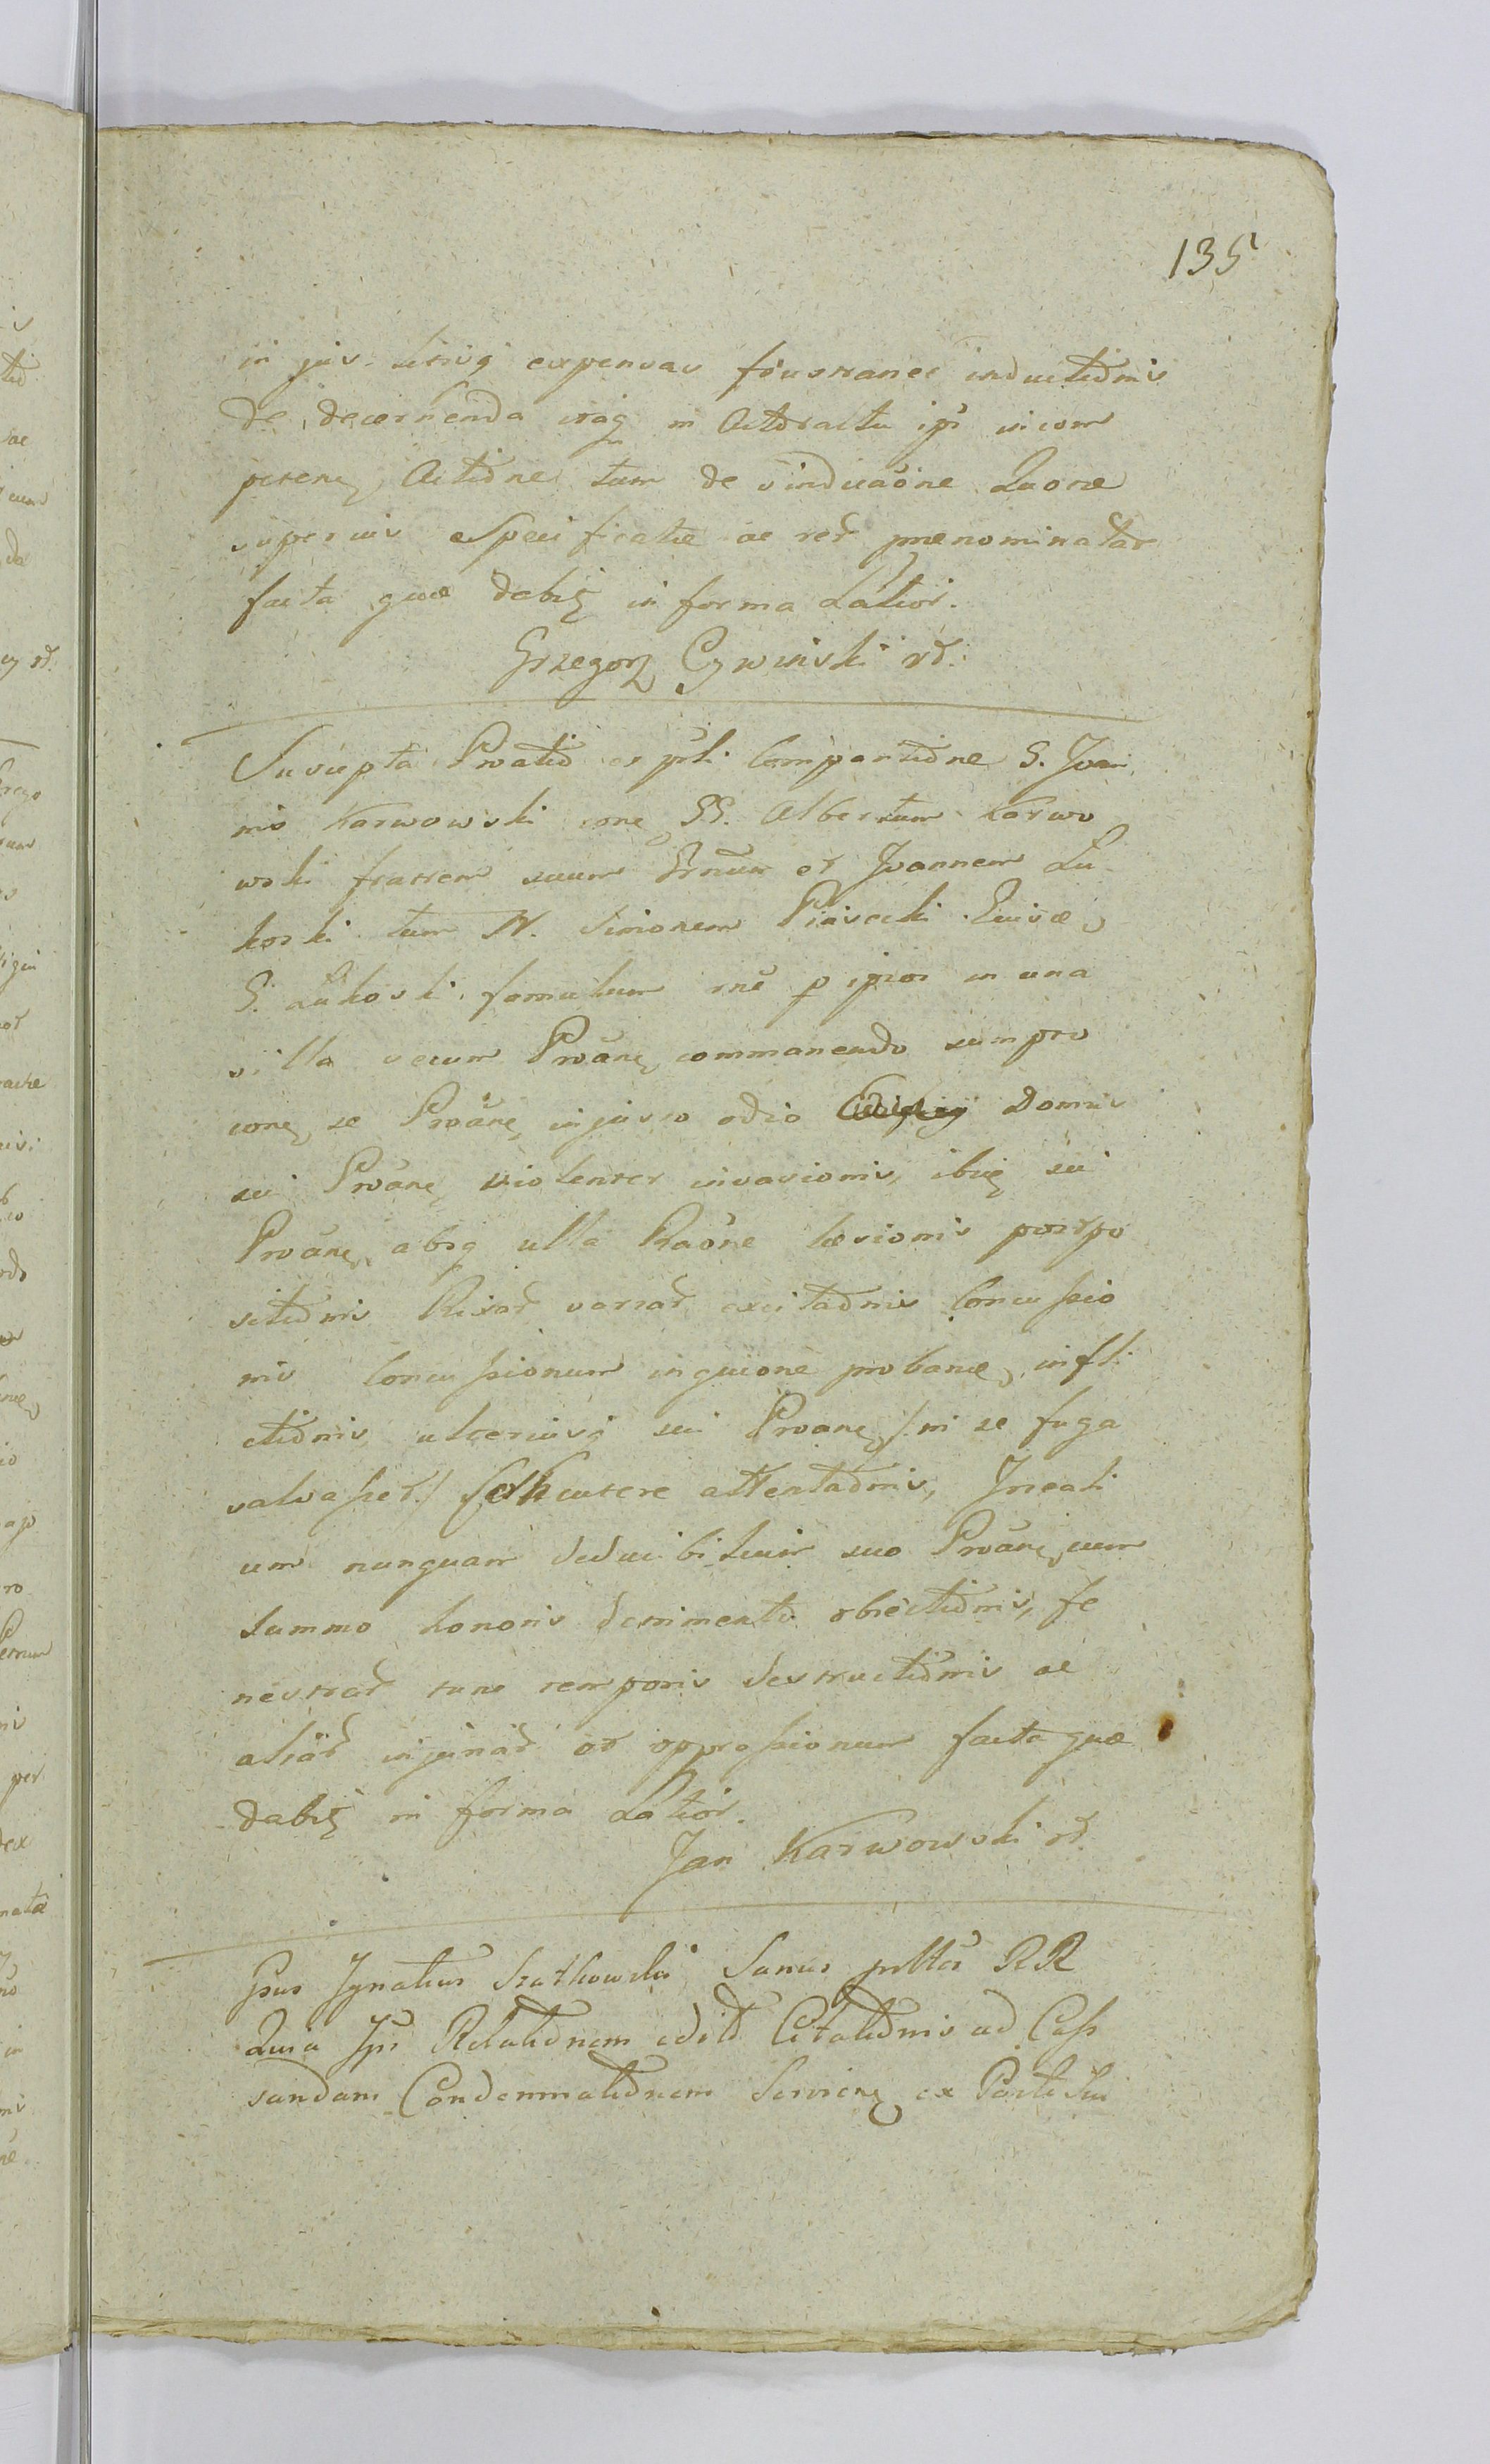 135
in jus litisq expensas frustranee inductiōnis
de decernenda itāq in Actōratu ipī incom
peten Actiōne tum de vindicaōne Laōne
superius specificatæ ac reř prænominatař
facta quæ debit in forma Latior.
Grzegorz Cywinski rš.
Suscepta Pro͞atio et p̃hi Comparitiōne G. Joan
nis Karwowski cone GG. Albertum Karwo
wski fratrem suum Grnum et Joannem Lu
koski tum N. Simonem Piasecki Civise
G. Lukoski famulum rnē p ipsos in una
villa secum Proãne commanendo sumpro
cone se Proãne injusto odio Domus
sui Proãne violenter invasionis, ibiq sui
Proãne absq ulla Raōne læsionis postpo
sitiōnis Rixař variař excitaōnis Concussio
nis Concussionum inquiōne probanæ, infli
ctiōnis ulteriusq sui Proãne /: ni se fuga
salvasset :/ cutere attentaōnis, Irreali
um nunquam deducibilium suo Proãne cum
summo honoris detrimento obiectiōnis, fe
nestrař tunc temporis destructiōnis ac
aliař injuriař et oppressionum facta quæ
dabit in forma Latior.
Jan Karwowski rš.
Gsus Ignatius Szatkowski Sanus RR
Quia Ips Relatiōnem edidt Citatiōnis ad Cass
sandam Condemnatiōnem Serviene ex Parte Sui